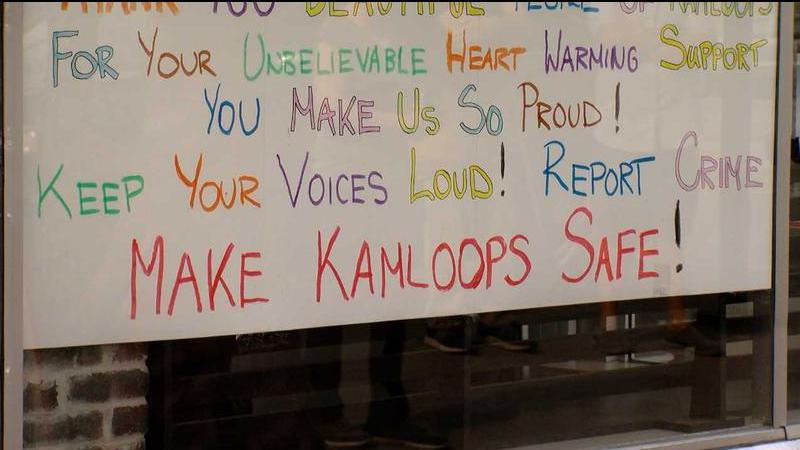 THANK YOU BEAUTIFUL PEOPLE OF KAMLOOPS
FOR YOUR UNBELIEVABLE HEART WARMING SUPPORT
YOU MAKE US SO PROUD!
KEEP YOUR VOICES LOUD! REPORT CRIME
MAKE KAMLOOPS SAFE!